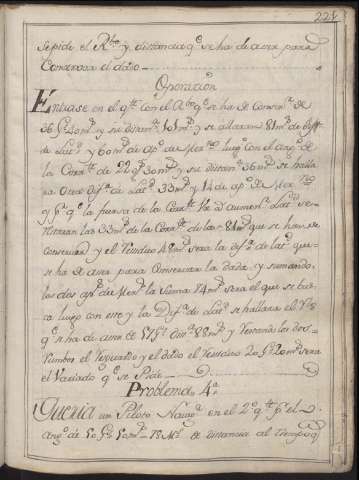 224
se pide el Rbo y distancia qe se ha de aver para
Conservar el dado
Operacion
Entrase en el qte con el Abo qe se ha de Conserr de
36 Gs 40 ms y su distana 101 ms y se allaran 81 ms de
de Lat y 60 ms de apo de Merno luego con el ango de
la Corrte de 22 gs 30 ms y su distana 36 ms se halla
ra Otra Difa de Lat 33 ms y 14 de apo de Merno
y Ps qe la fuerza de la Corrte ha de aumenr Latd se
restaran las 33 ms de la Corrte de las 81 ms que se han de
Conservar y el Residuo 48 ms sera la difa de latd que
se ha de aver para Conservar la dada y sumando
los dos aps de Merno la Suma 74 ms sera el que se bus
ca luego con este y la Difa de Latd se hallara el
qe se ha de aver de 57 Gs dista 88 ms y Restando los dos
Rumbos el Resultado y el dado el Residuo 20 Gs 20 ms sera
el Variado qe se Pide
Problema 4o
Queria un Piloto Navegr en el 2o qte Pr el
Ango de 50 Gs 50 ms 78 Mls de distancia al tiempo q